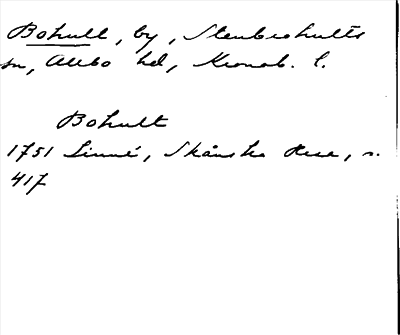 Bohult, by, Stenbrohults
sn, Allbo hd, Kronob. l.
Bohult
1751 Linné, Skånska Resa, s.
417